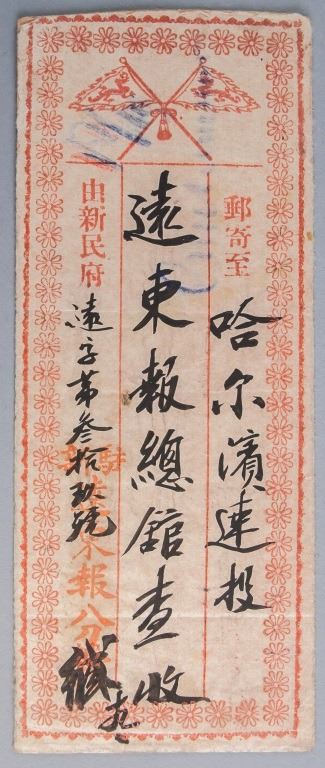 郵寄至哈尔濱速投
遠東報總舘查收
由新民府
遠字第叁拾玖號
報分
緘